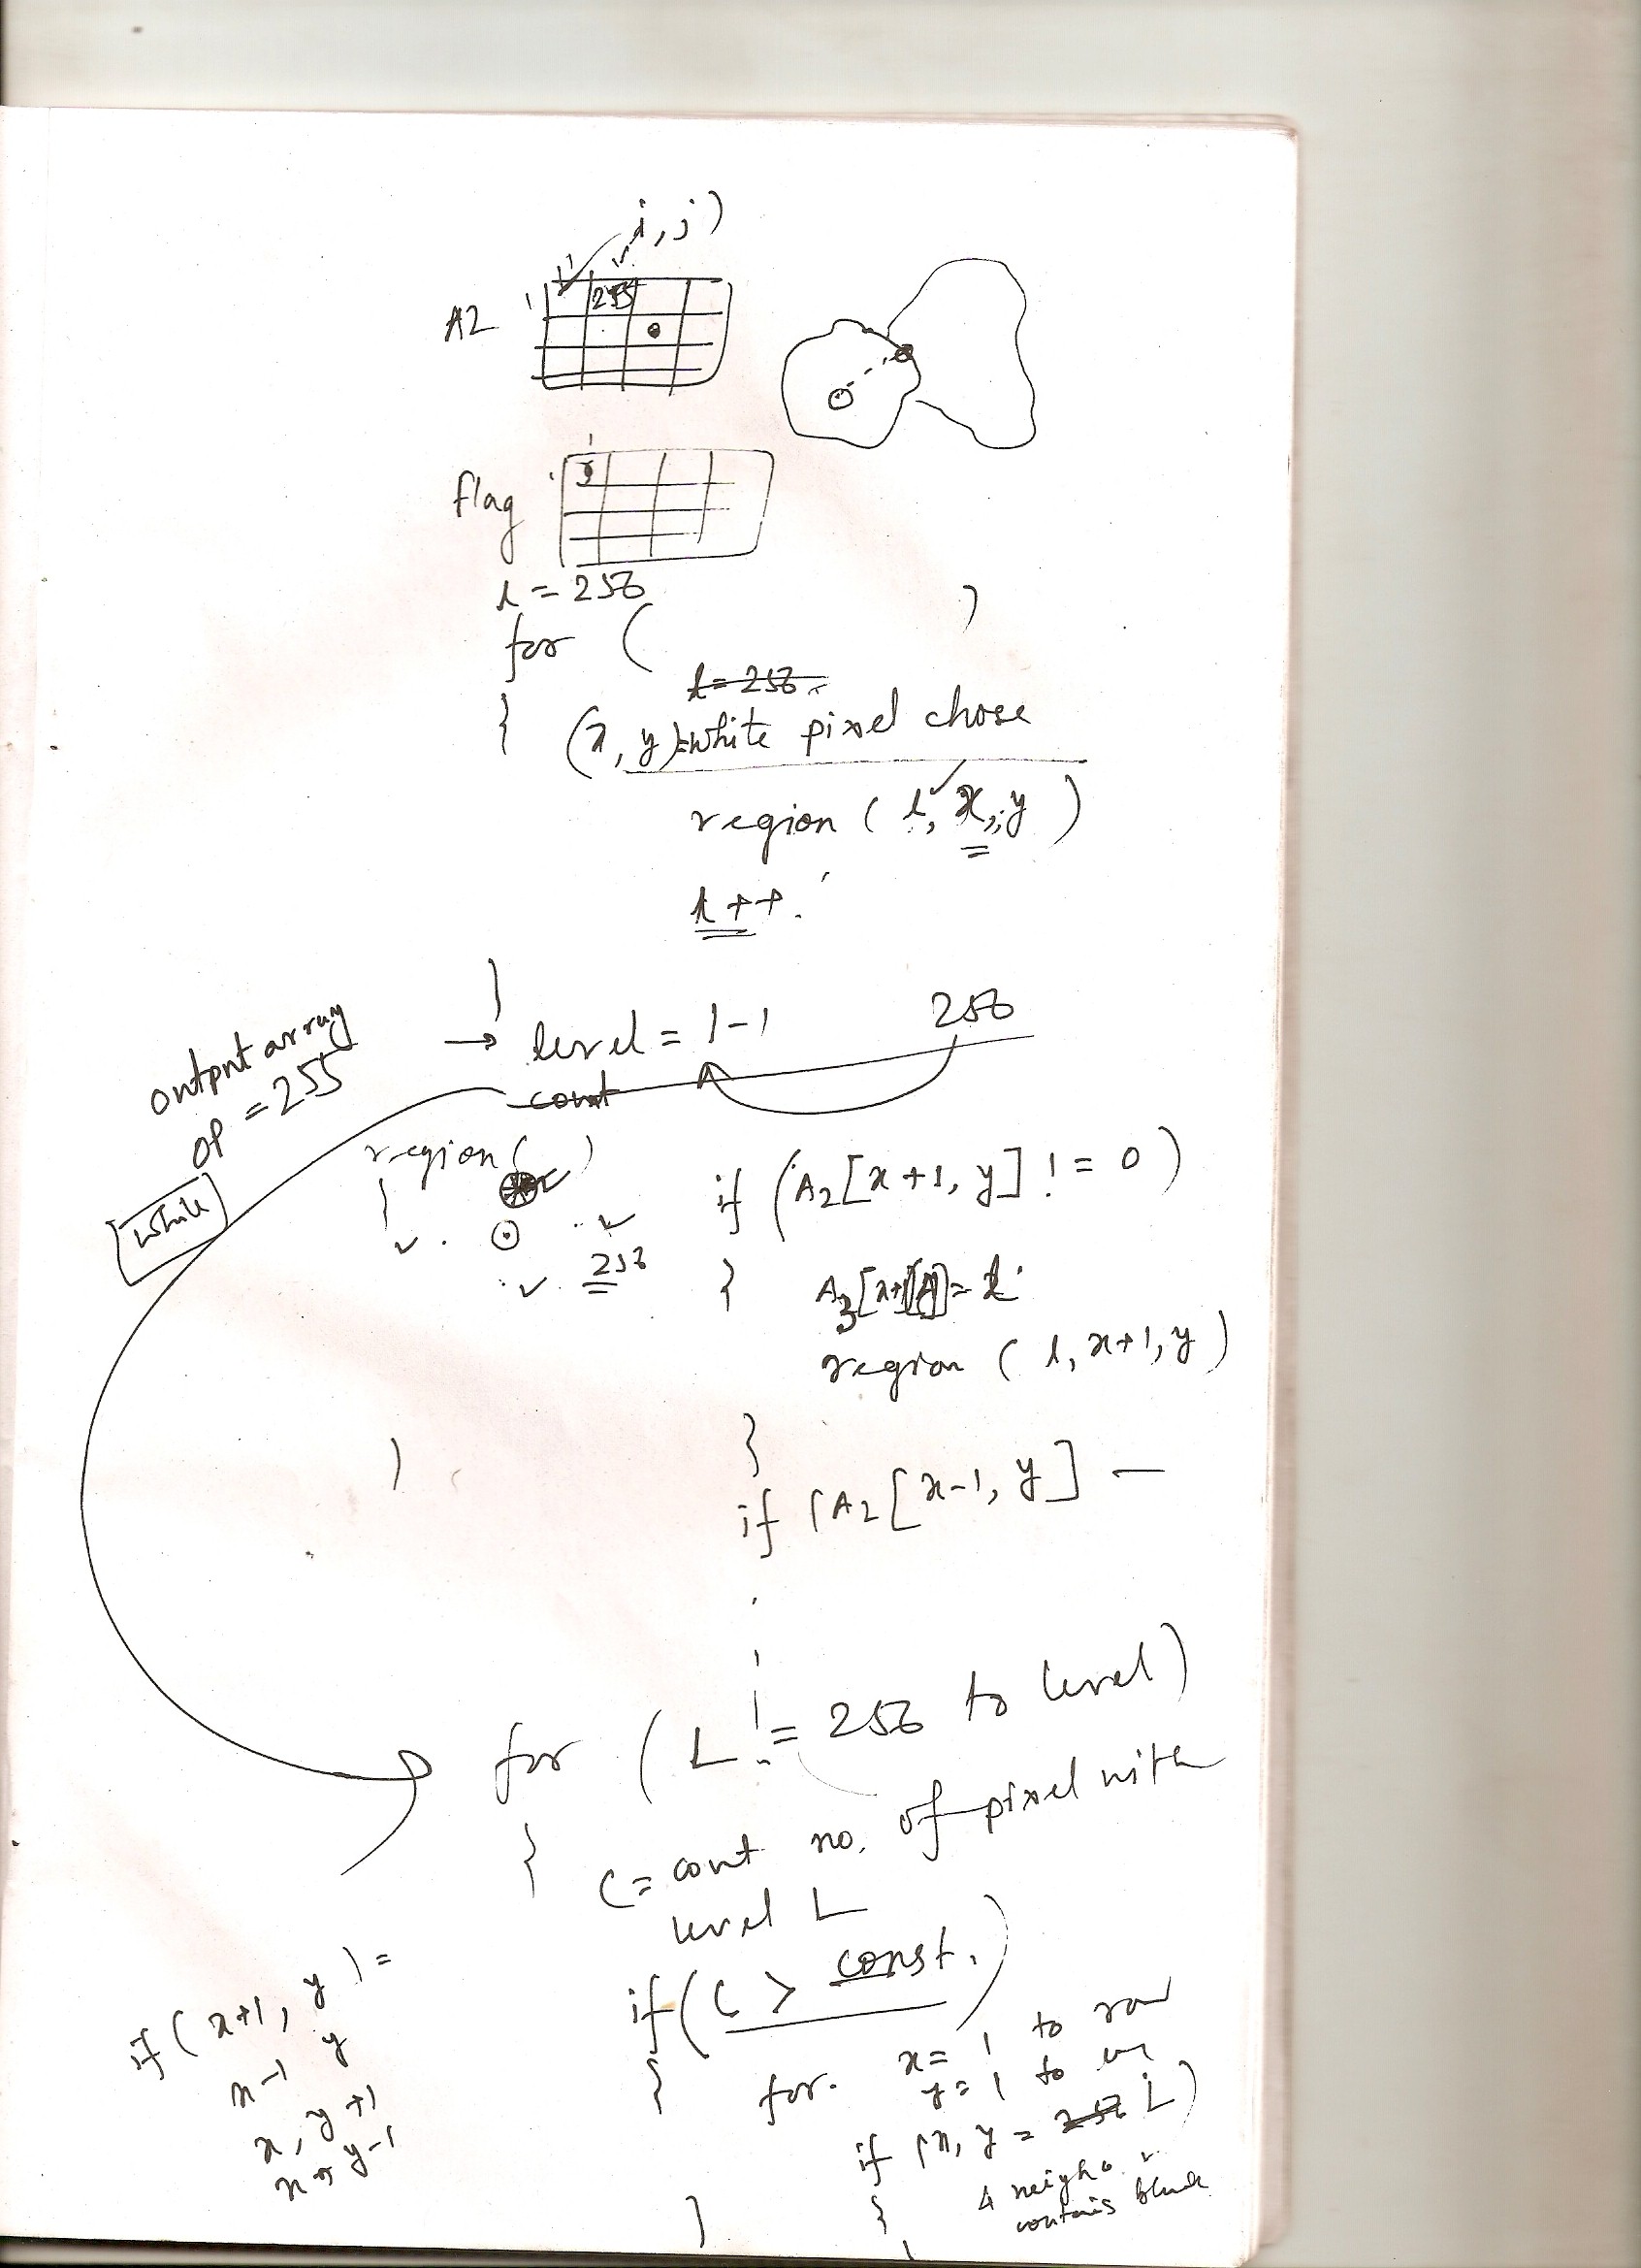 i, j)
1 1
A2 1 255
1
flag
l = 256
for ( )
l = 256
{ (x, y) = white pixel chose
region ( l, x, y )
l ++.
}
→ level = l-1 256
const
output array
op = 255
white
region ( )
{
256
if (A2[x+1, y] != 0)
{ A3[x+1, y] = l
region ( l, x+1, y )
}
if (A2[x-1, y] —
}
for ( L = 256 to level)
{ C = cont no. of pixel with
level L
if (C > const.)
{ for. x = 1 to row
y = 1 to
if (x, y = 256 L)
{ 4 neighb.
contains black
}
if ( x+1, y ) =
x-1 y
x, y+1
x y-1